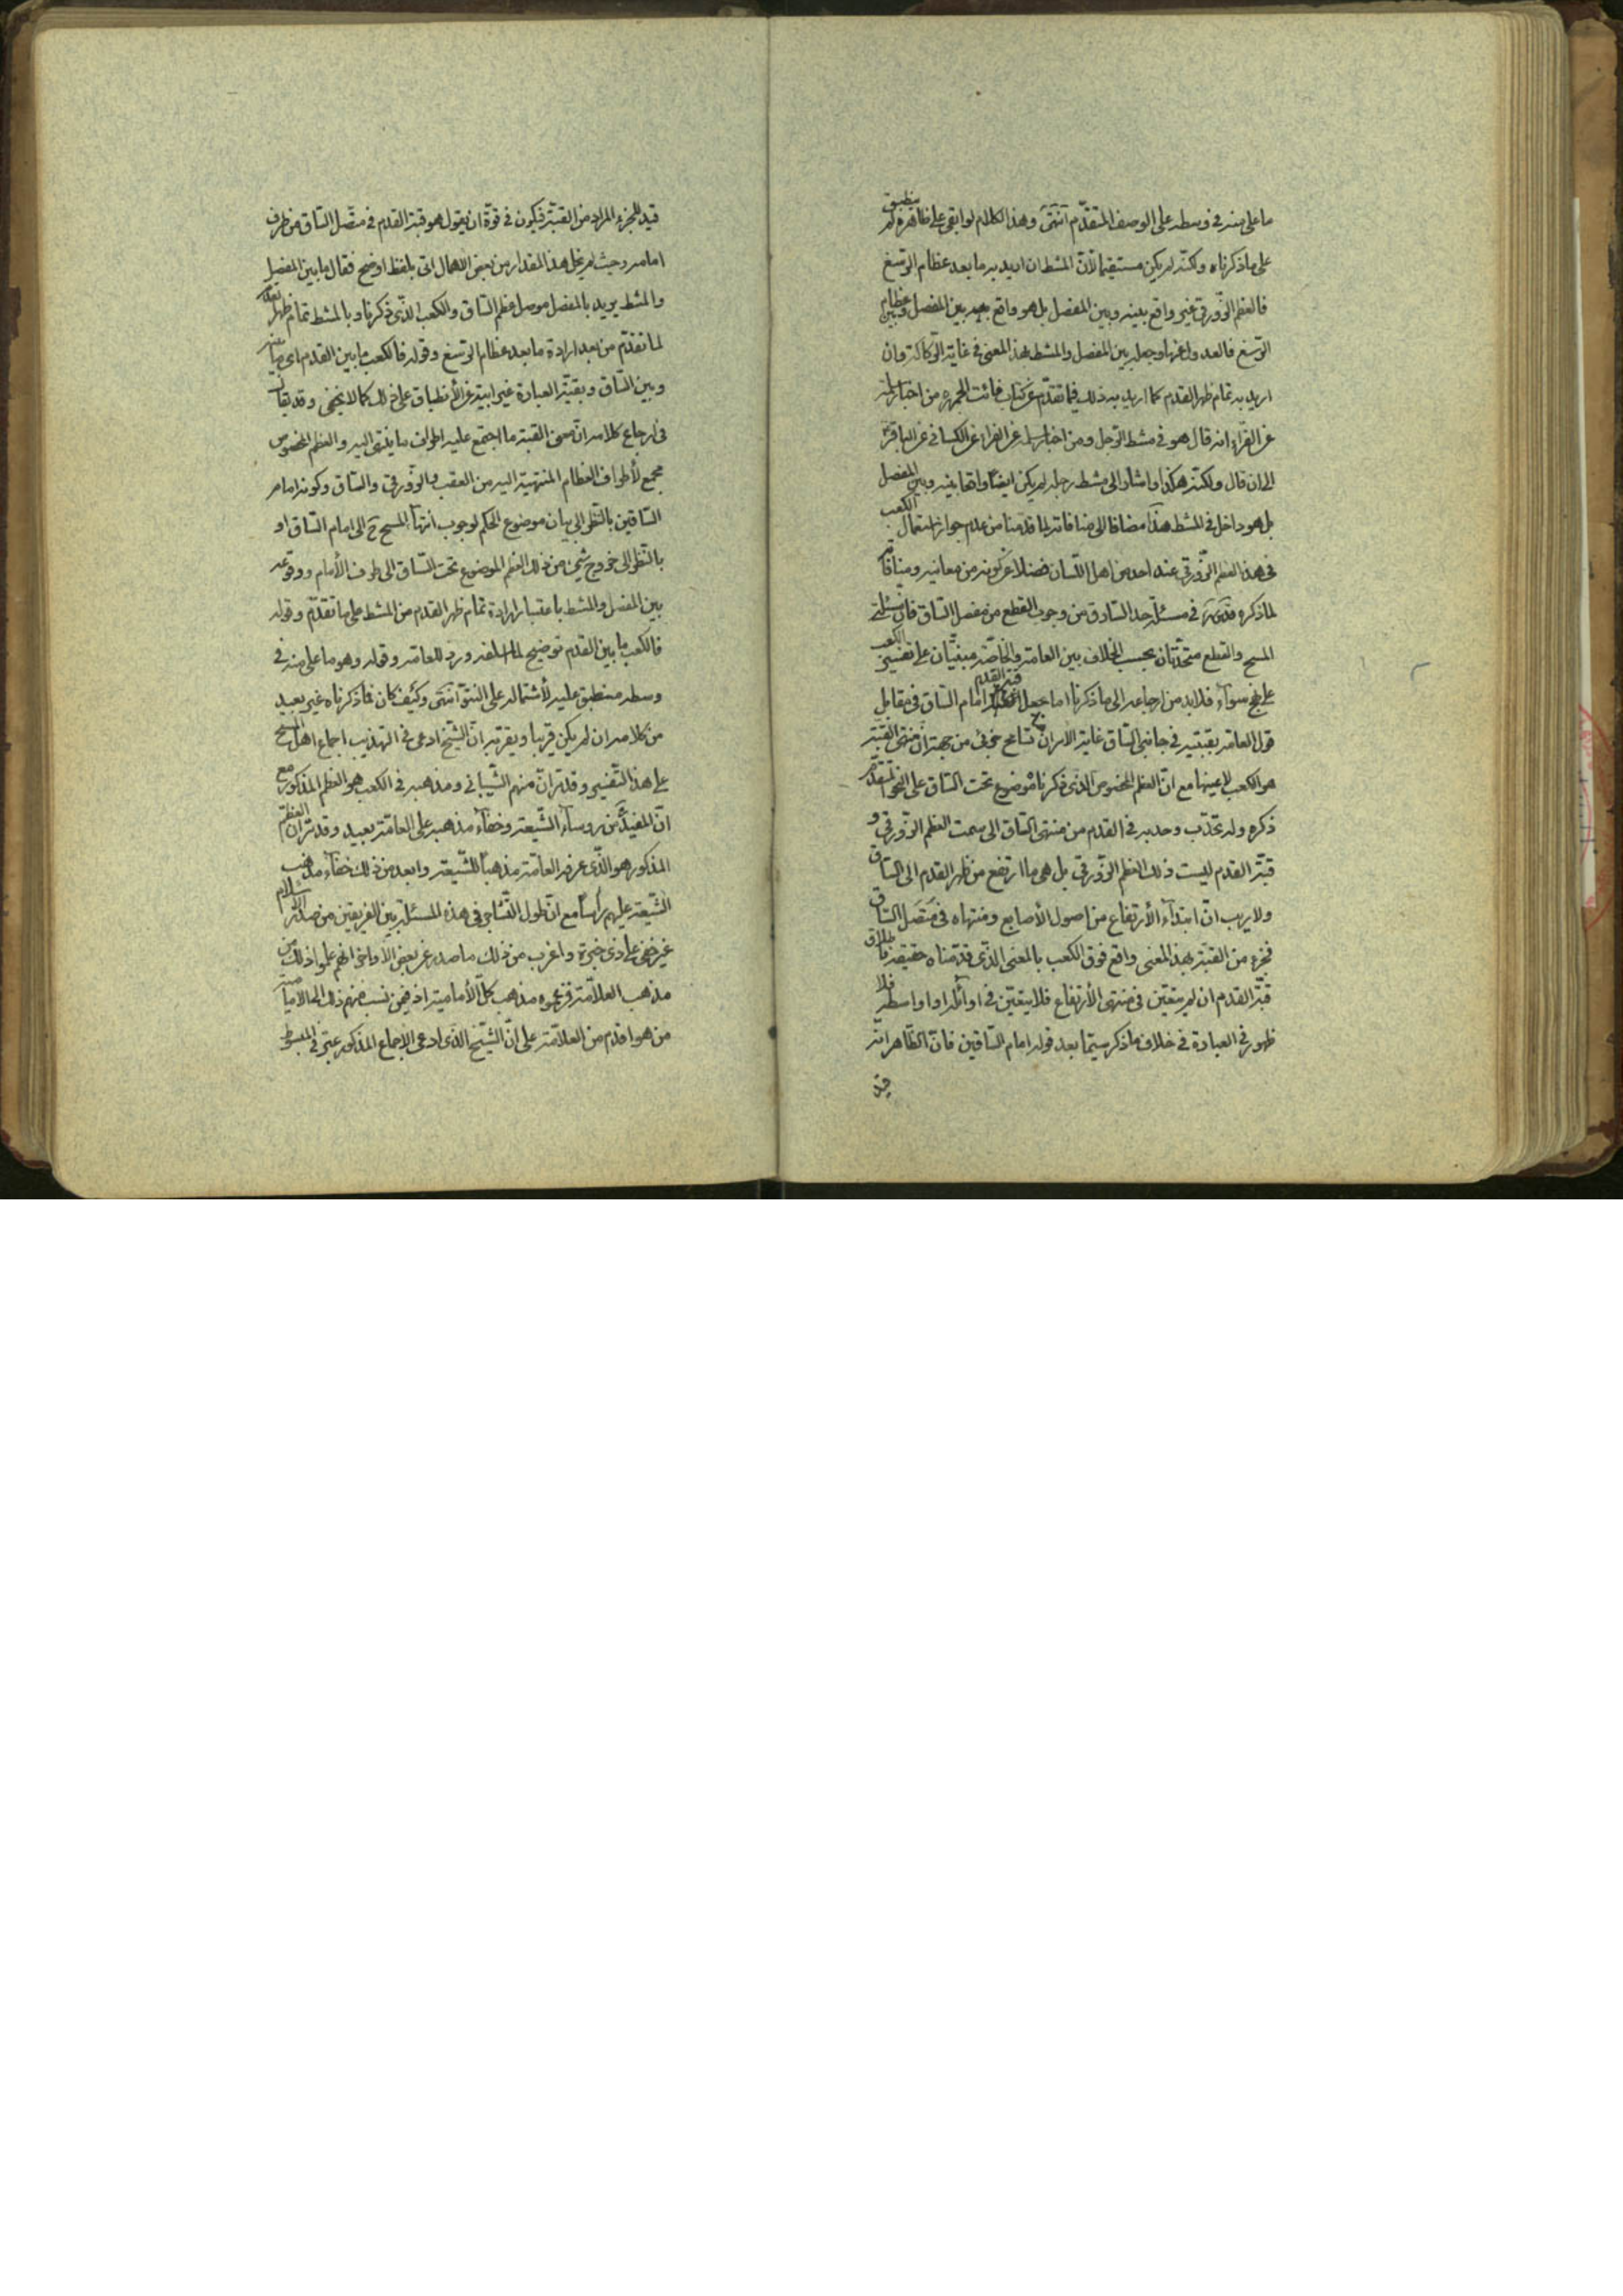 ما علی منه فی وسطه علی الوصف المتقدّم انتهی وهذا الکلام لو ابقی علی ظاهره لم ینطبق
علی ماذکرناه ولکنّه لم یکن مستقیما لانّ المشط ان ارید به ما بعد عظام الرّسغ
فالعظم الزّورقی غیر واقع بینه وبین المفصل بل هو واقع بعد بین المفصل وبین عظام
الرّسغ فالعدول عنها وجعله بین المفصل والمشط بهذا المعنی فی غایة الرّکاکة وان
ارید به تمام ظهر القدم کما ارید به ذلک فیما تقدّم عن کتاب فائت الجمهره من اخبار سلمة
عن الفرّاء انه قال هو فی مشط الرّجل ومن اخبار سلمة عن الفرّاء عن الکسائی عن الباقر
الی ان قال ولکنّه هکذا واشار الی مشط رجله لم یکن ایضًا واقعا بینه وبین المفصل
بل هو داخل فی المشط هذا مضافا الی منافاته لما قدّمنا من عدم جواز استعمال الکعب
فی هذا العظم الزّورقی عند احد من اهل اللّسان فضلا عن کونه من معانیه ومنافاته
لما ذکره فی مسئلة حدّ السّارق من وجوب القطع من مفصل السّاق فانّ مسئلتی
المسح والقطع متّحدتان بحسب الخلاف بین العامّة والخاصّة مبنیّتان علی تفسیر الکعب
علی نهج سوآء فلابد من ارجاعه الی ماذکرنا اما جعل قبّة القدم امام السّاق فی مقابل
قول العامّة بقبّتیه فی جانبی السّاق غایة الامر انّ تسامح جزئی من جهة انّ منتهی القبّة
هو الکعب لا عینها مع انّ العظم المخصوص الذی ذکرناه موضوع تحت السّاق علی النحو المتقدّم
ذکره وله تحدّب وحدبه فی القدم من منتهی السّاق الی سمت العظم الزّورقی و
قبّة القدم لیست ذلک العظم الزّورقی بل هی ما ارتفع من ظهر القدم الی السّاق
ولا ریب انّ ابتدآء الأرتفاع من اصول الأصابع ومنتهاه فی متّصل السّاق
فجزء من القبّة بهذا المعنی واقع فوق الکعب بالمعنی الذّی قدّمناه حقیقة فاطلاق
قبّة القدم ان لم یتعیّن فی منتهی الأرتفاع فلا یتعیّن فی اوائله او اواسطه فلا
ظهور فی العبارة فی خلاف ماذکر سیّما بعد قوله امام السّاقین فانّ الظّاهر انّه
قید
قید للجزء المراد من القبّة فیکون فی قوّة ان یقول هو قبّة القدم فی متّصل السّاق من طرف
امامه وحیث لم یخل هذا المقدار من بعض الاهمال اتی بلفظ اوضح فقال ما بین المفصل
والمشط یرید بالمفصل موصل عظم السّاق والکعب الذّی ذکرنا وبالمشط تمام ظهر القدم
لما تقدّم من بعد ارادة ما بعد عظام الرّسغ وقوله فالکعب ما بین القدم ای
وبین السّاق وبقیّة العبارة غیر ابیة عن الأنطباق علی ذلک کما لا یخفی وقد یقال
فی ارجاع کلامه انّ معنی القبّة ما اجتمع علیه اطراف ما ینتهی الیه والعظم المخصوص
مجمع لأطراف العظام المنتهیة الیه من العقب والزّورقی والسّاق وکونه امام
السّاقین بالنّظر الی بیان موضوع الحکم لوجوب انتهآء المسح ح الی امام السّاق او
بالنّظر الی خروج شیء من ذلک العظم الموضوع تحت السّاق الی طرف الأمام ووقوعه
بین المفصل والمشط باعتبار ارادة تمام ظهر القدم من المشط علی ما تقدّم وقوله
فالکعب ما بین القدم توضیح لما اسلفه وردّ للعامّة وقوله وهو ما علی منه فی
وسطه منطبق علیه لأشتماله علی النتوّ انتهی وکیف کان فما ذکرناه غیر بعید
من کلامه ان لم یکن قریبا ویقرّبه انّ الشّیخ ادعی فی التهذیب اجماع اهل المسح
علی هذا التّفسیر وقد مرّ انّ منهم الشّیبانی ومذهبه فی الکعب هو العظم المذکور مع
انّ المفید من روسآء الشّیعة وخفآء مذهبه علی العامّة بعید وقد مرّ انّ العظم
المذکور هو الذّی عرفه العامّة مذهباً للشّیعة وابعد من ذلک خفآء مذهب
الشّیعة علیهم رأساً مع انّ طول التّشاجر فی هذه المسئلة بین الفریقین من صدر الاسلام
غیر خفیّ علی ذی خبرة واغرب من ذلک ما صدر عن بعض الأواخر انّهم علموا ذلک من
مذهب العلاّمة فزعموه مذهب کلّ الأمامیة اذ فیمن نسب منهم ذلک الی الامامیّة
من هو اقدم من العلاّمة علی انّ الشّیخ الذّی ادعی الأجماع المذکور عبّر فی المبسوط